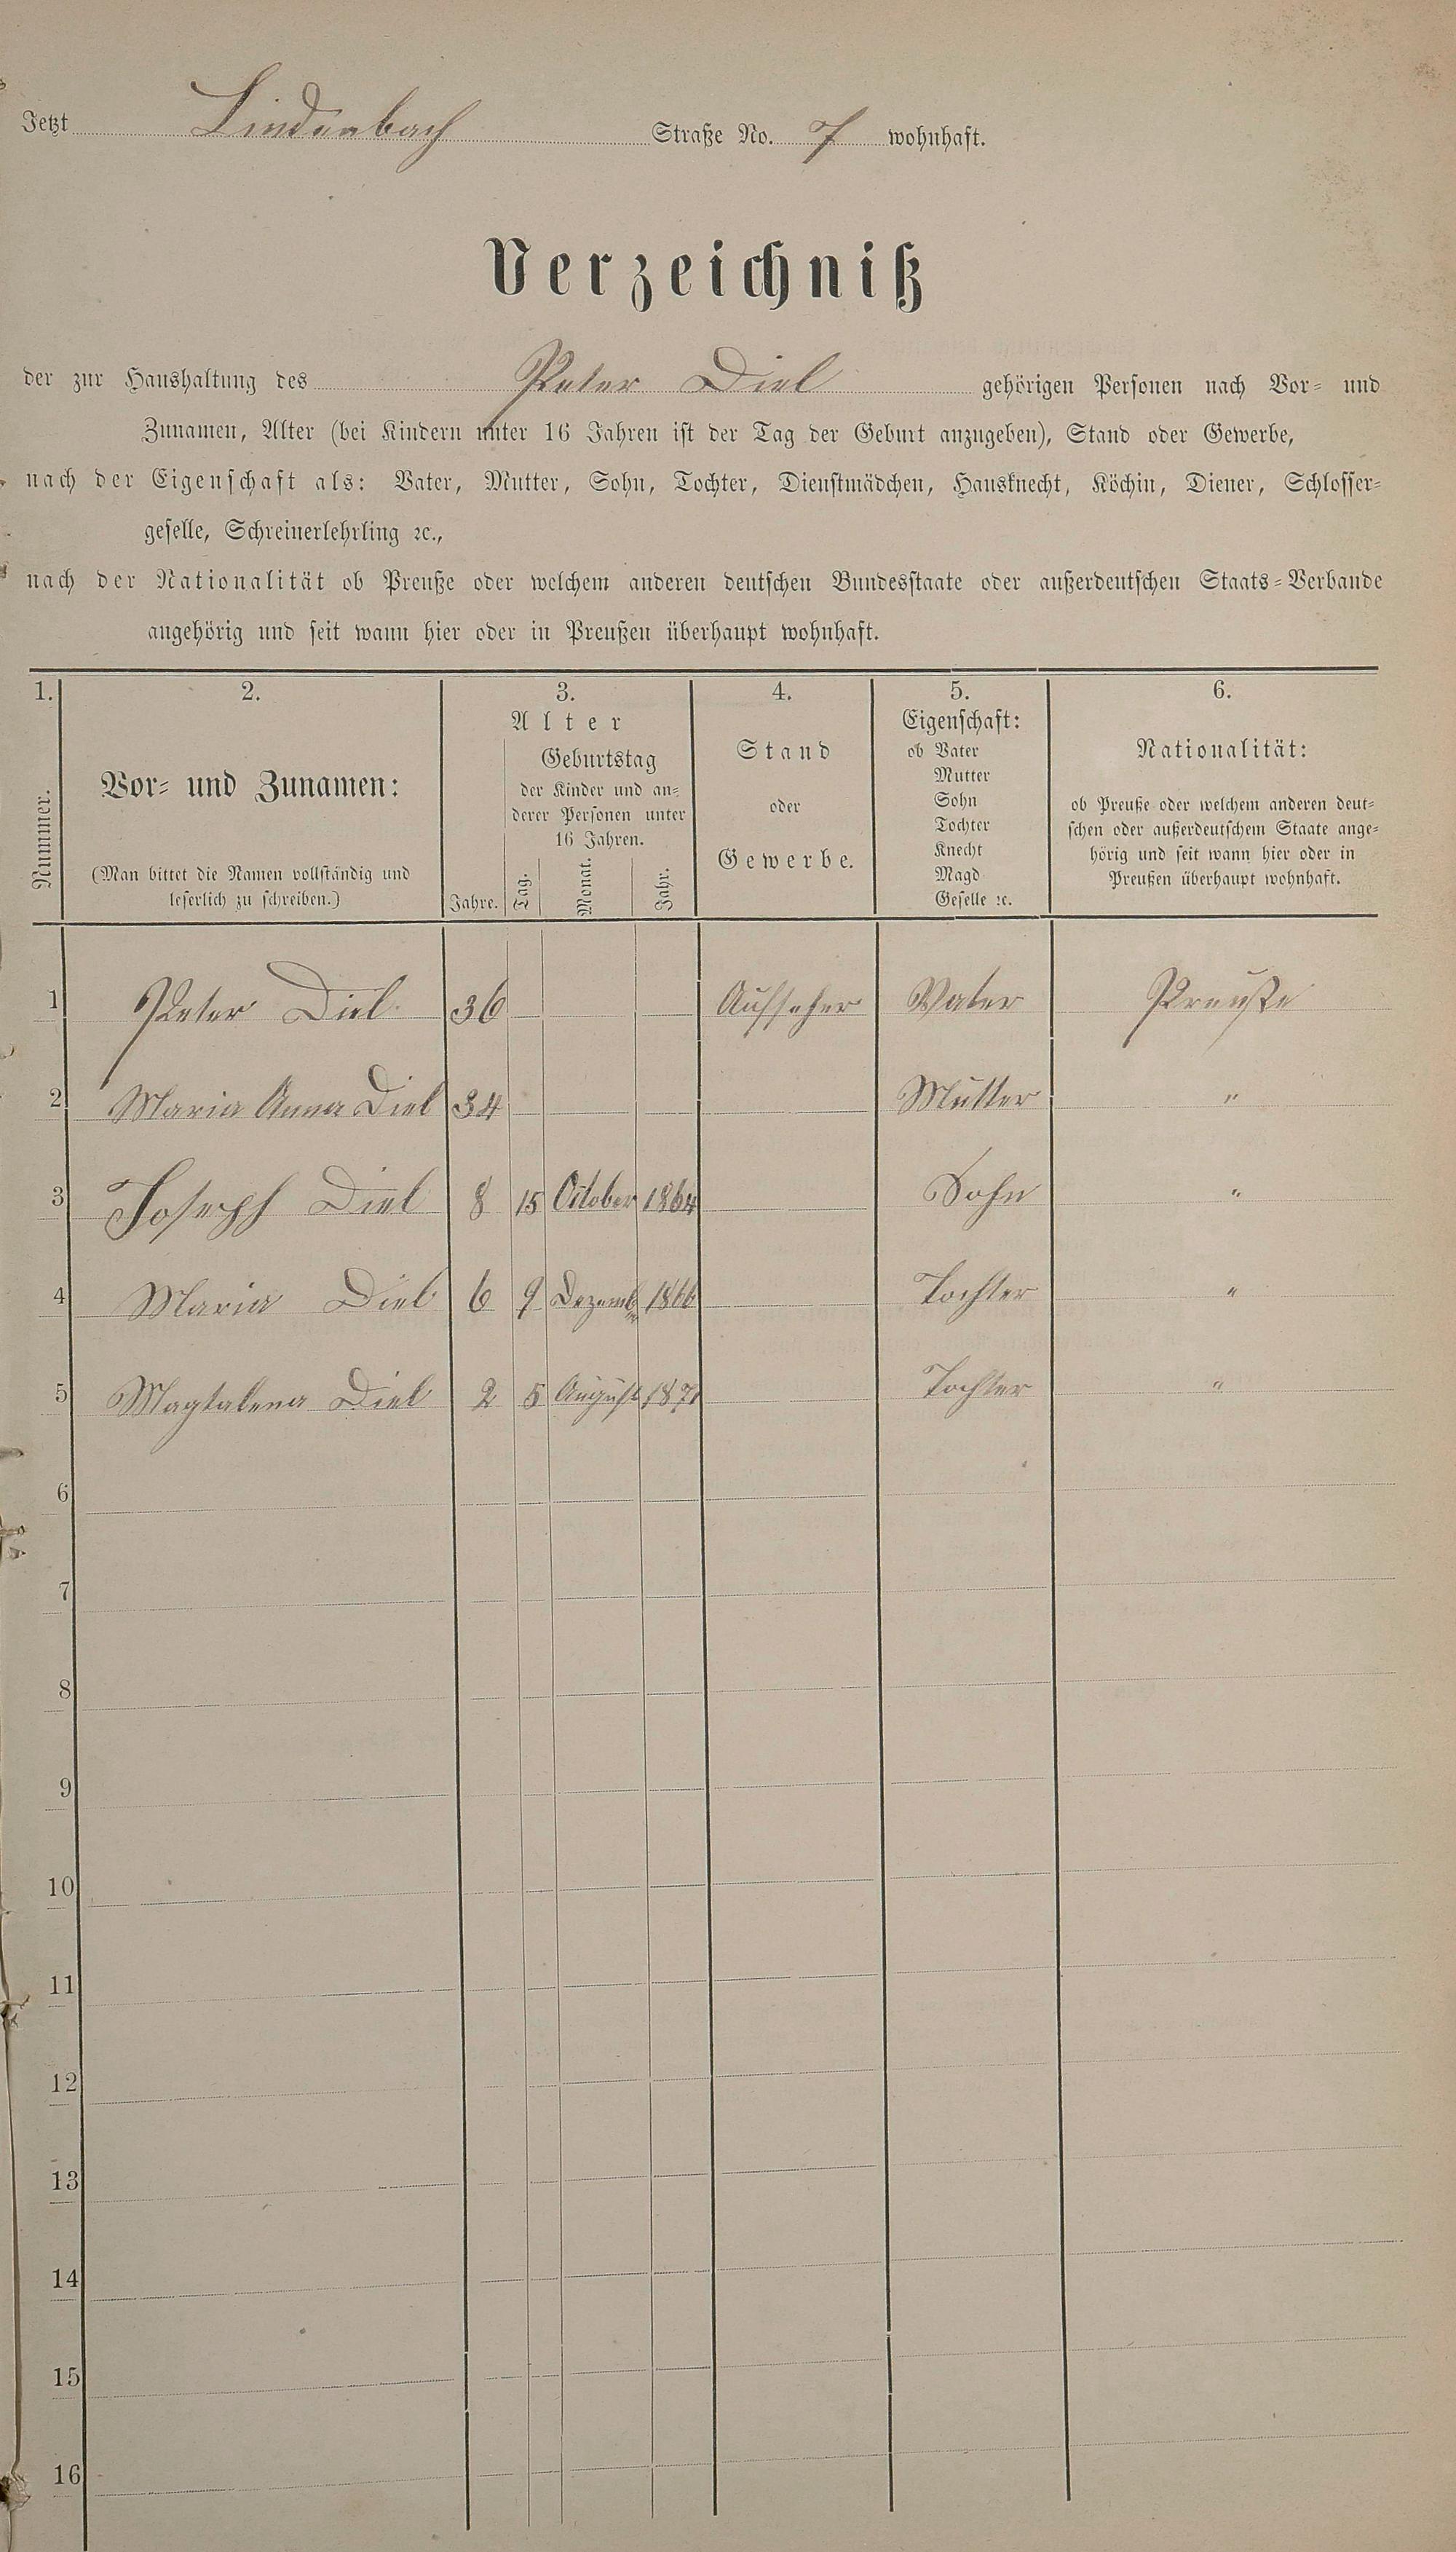 Jetzt Lindenbach Straße No. 7 wohnhaft.
Verzeichniß
der zur Haushaltung des Peter Diel gehörigen Personen nach Vor- und
Zunamen, Alter (bei Kindern unter 16 Jahren ist der Tag der Geburt anzugeben), Stand oder Gewerbe,
nach der Eigenschaft als: Vater, Mutter, Sohn, Tochter, Dienstmädchen, Hausknecht, Köchin, Diener, Schlosser-
geselle, Schreinerlehrling ꝛc.,
nach der Nationalität ob Preuße oder welchem anderen deutschen Bundesstaate oder außerdeutschen Staats-Verbande
angehörig und seit wann hier oder in Preußen überhaupt wohnhaft.
1.
Nummer.
2.
Vor- und Zunamen:
(Man bittet die Namen vollständig und
leserlich zu schreiben.)
3.
Alter
Jahre.
Geburtstag
der Kinder und an-
derer Personen unter
16 Jahren.
Tag.
Monat.
Jahr.
4.
Stand
oder
Gewerbe.
5.
Eigenschaft:
ob Vater
Mutter
Sohn
Tochter
Knecht
Magd
Geselle ꝛc.
6.
Nationalität:
ob Preuße oder welchem anderen deut-
schen oder außerdeutschem Staate ange-
hörig und seit wann hier oder in
Preußen überhaupt wohnhaft.
1 Peter Diel 36 Aufseher Vater Preuße
2 Maria Anna Diel 34 Mutter "
3 Joseph Diel 8 15 October 1864 Sohn "
4 Maria Diel 6 9 Dezember 1866 Tochter "
5 Magtalena Diel 2 5 August 1871 Tochter "
6
7
8
9
10
11
12
13
14
15
16